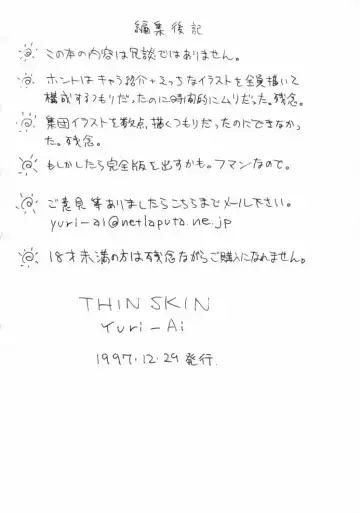 編集後記
この本の内容は冗談ではありません。
ホントはキャラ紹介+えっちなイラストを全員描いて
構成するつもりだったのに時間的にムリだった。残念。
集団イラストを数点、描くつもりだったのにできなかっ
た。残念。
もしかしたら完全版を出すかも。フマンなので。
ご意見等ありましたらこちらまでメール下さい。
yuri-ai@netlaputa.ne.jp
18才未満の方は残念ながらご購入になれません。
THIN SKIN
Yuri-Ai
1997.12.29発行.